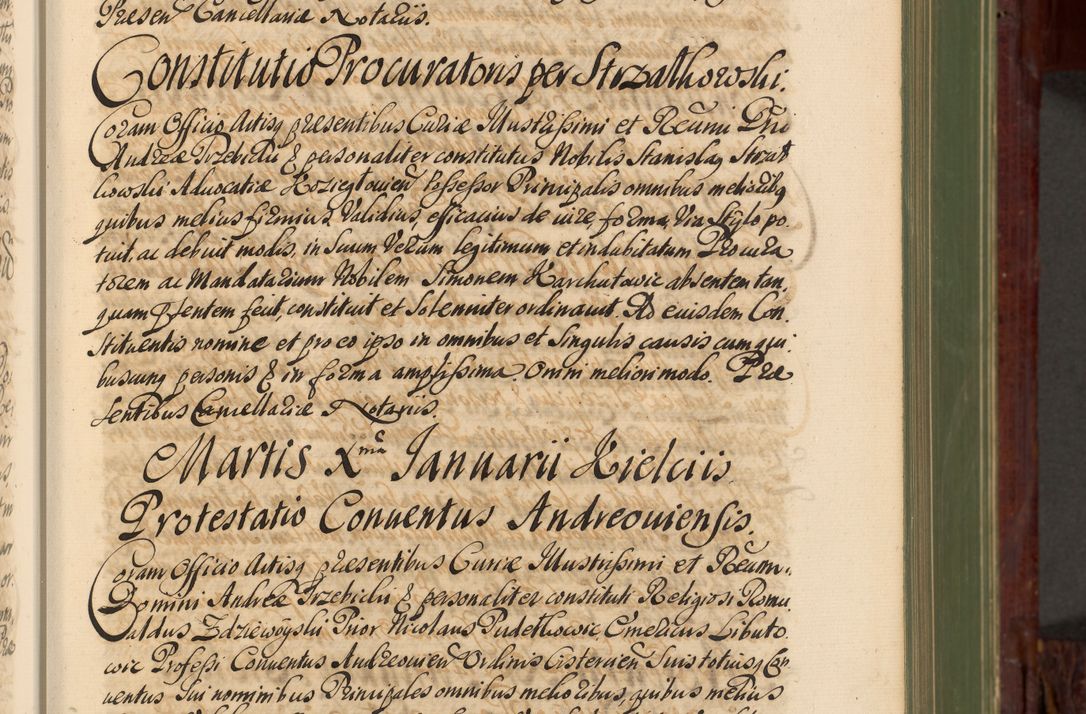 Presen Cancellariæ Notariis.
Constitutio Procuratoris per Strzałkowski.
Coram Officio Actisq præsentibus Curiæ Illustrissimi et Rẽumi Dñi
Andreæ Trzebicki & personaliter constitutus Nobilis Stanislaq Strzał
kowski Aduocatiæ Koziegłouien̄ Possessor Principalis omnibus melioribq
quibus melius firmius, Validius, efficacius de iure, forma, Via Stylo po.
tuit ac debuit modis, in Suum Verum legitimum et indubitatum Procura
torem ac Mandatarium Nobilem Simonem Karchutowic absentem tan,
quam p̃sentem fecit, constituit et Solenniter ordinauit. Ad euisdem Con,
stituentis nomine et pro eo ipso in omnibus et Singulis causis cum qui.
buscunq personis & in forma amplissima. Omni meliori modo. Præ
sentibus Cancellariæ Notariis.
Martis Xma Januarii Kielciis.
Protestatio Conuentus Andreouiensis.
Coram Officio Actisq præsentibus Curiæ Illustrissimi et Rẽumi.
Domini Andreæ Trzebicki & personaliter constituti Religiosi Romu.
aldus Zdziewoyski Prior Nicolaus Pudełkowic, Emericus Libuto.
wic Professi Conuentus Andreouien̄ Ordinis Cistercien̄ Suis totiusq Con
uentus Sui nominibus Principales omnibus melioribus, quibus melius